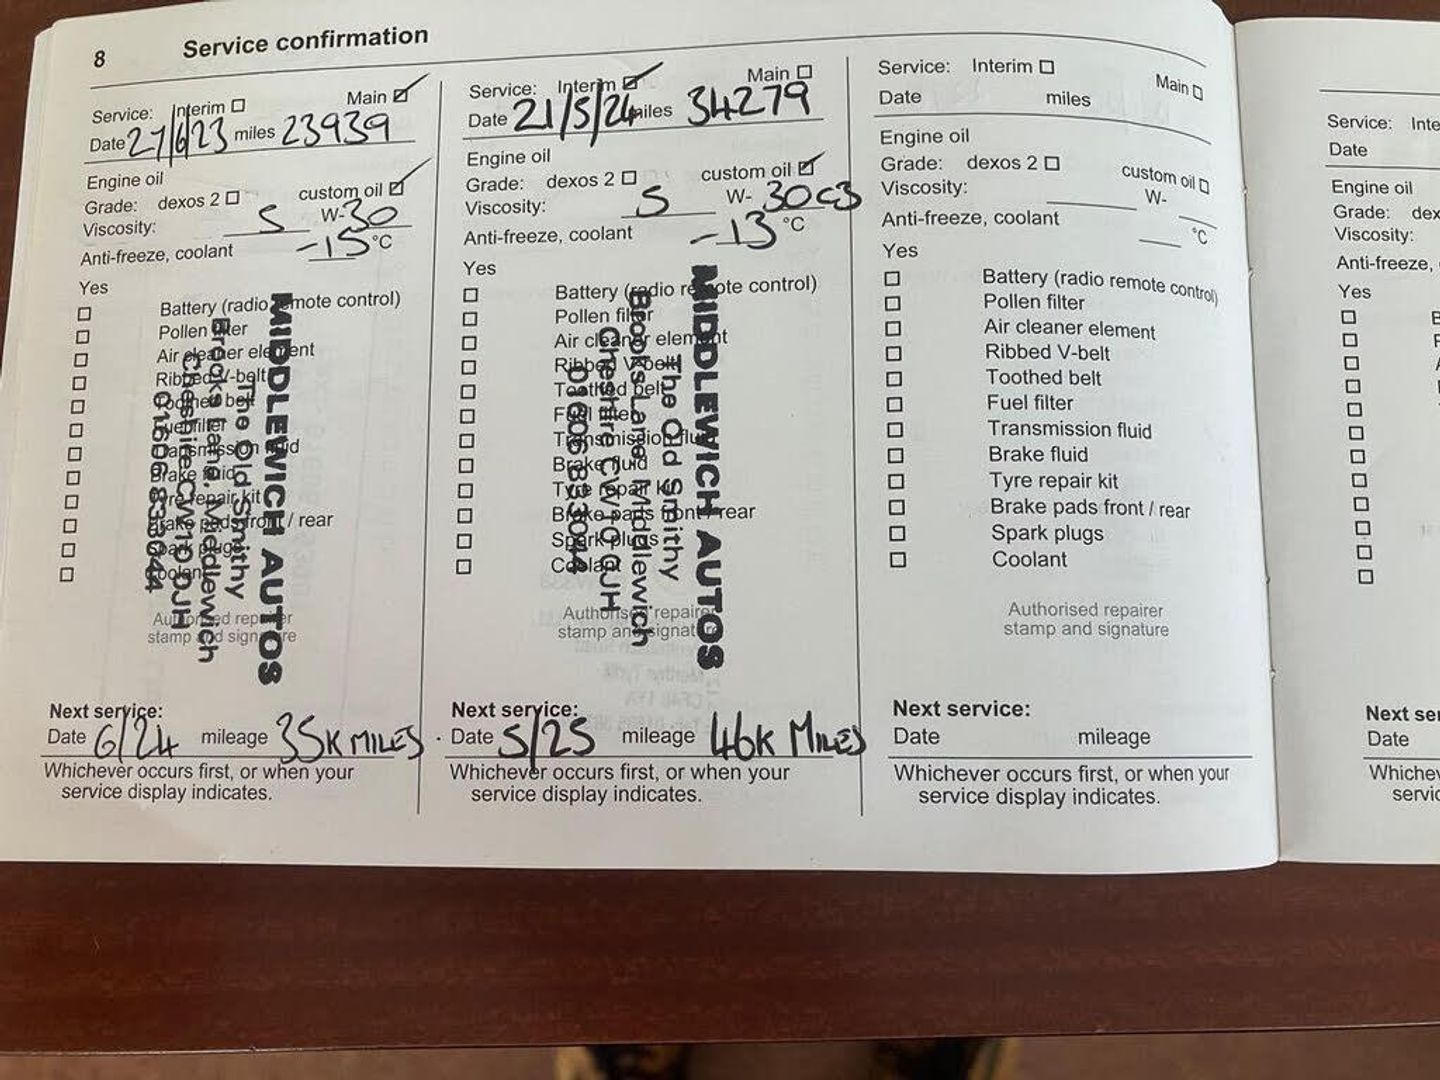 8 Service confirmation
Service: Interim Main
Date 27/6/23 miles 23939
Engine oil
Grade: dexos 2 custom oil
Viscosity: 5 W-30
Anti-freeze, coolant -15 °C
Yes
Battery (radio remote control)
Pollen filter
Air cleaner element
Ribbed V-belt
Toothed belt
Fuel filter
Transmission fluid
Brake fluid
Tyre repair kit
Brake pads front / rear
Spark plugs
Coolant
MIDDLEWICH AUTOS
The Old Smithy
Brooks Lane, Middlewich
Cheshire CW10 0JH
01606 833044
Authorised repairer
stamp and signature
Next service:
Date 6/24 mileage 35K MILES
Whichever occurs first, or when your
service display indicates.
Service: Interim Main
Date 21/5/24 miles 34279
Engine oil
Grade: dexos 2 custom oil
Viscosity: 5 W- 30 C3
Anti-freeze, coolant -13 °C
Yes
Battery (radio remote control)
Pollen filter
Air cleaner element
Ribbed V-belt
Toothed belt
Fuel filter
Transmission fluid
Brake fluid
Tyre repair kit
Brake pads front / rear
Spark plugs
Coolant
MIDDLEWICH AUTOS
The Old Smithy
Brooks Lane, Middlewich
Cheshire CW10 0JH
01606 833044
Authorised repairer
stamp and signature
Next service:
Date 5/25 mileage 46K MILES
Whichever occurs first, or when your
service display indicates.
Service: Interim Main
Date miles
Engine oil
Grade: dexos 2 custom oil
Viscosity: W-
Anti-freeze, coolant °C
Yes
Battery (radio remote control)
Pollen filter
Air cleaner element
Ribbed V-belt
Toothed belt
Fuel filter
Transmission fluid
Brake fluid
Tyre repair kit
Brake pads front / rear
Spark plugs
Coolant
Authorised repairer
stamp and signature
Next service:
Date mileage
Whichever occurs first, or when your
service display indicates.
Service: Inte
Date
Engine oil
Grade: dex
Viscosity:
Anti-freeze,
Yes
Next se
Date
Whichev
servic